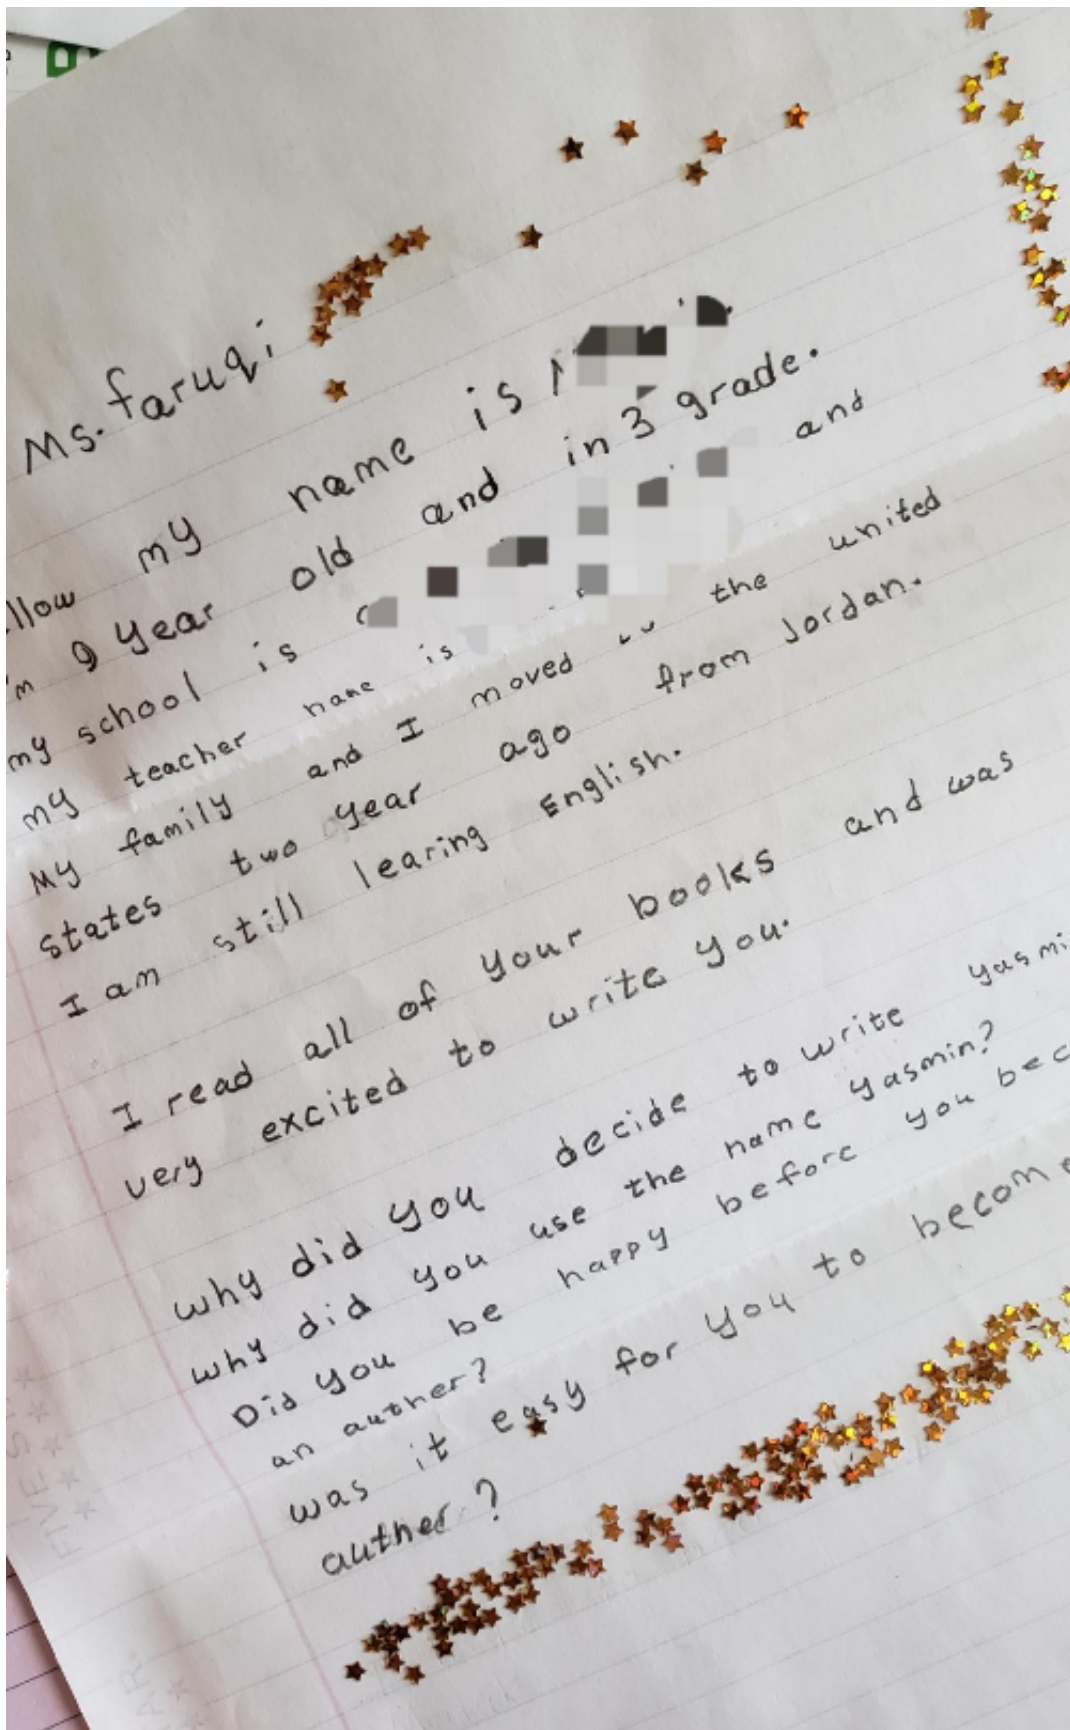 Ms. faruqi
llow my name is
m 9 year old and in 3 grade.
my school is and
my teacher name is
My family and I moved the united
states two year ago from Jordan.
I am still learing English.
I read all of your books and was
very excited to write you.
why did you decide to write yasmi
why did you use the name yasmin?
Did you be happy before you bec
an auther?
was it easy for you to become
auther?
FIVE ST